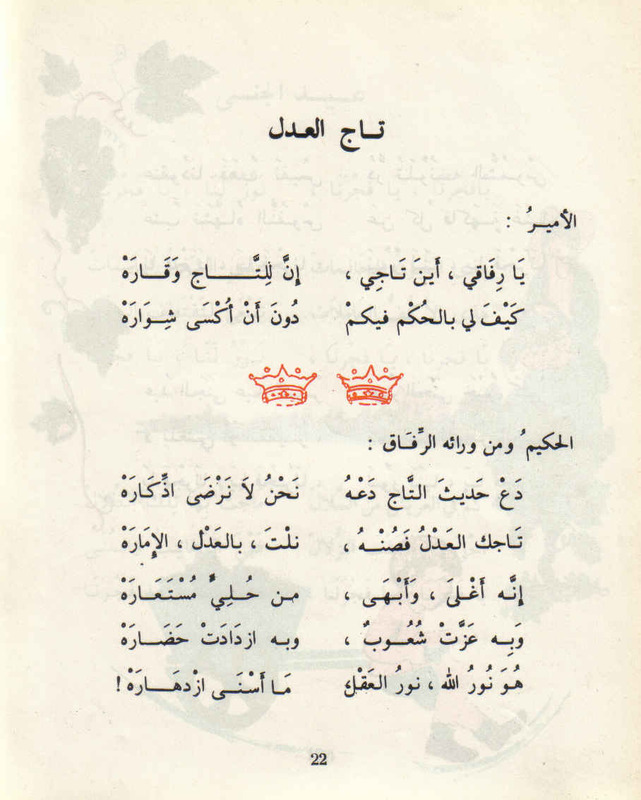 تاج العدل
الأميرُ :
يَا رِفَاقي ، أَينَ تَاجي ، إِنَّ لِلتَّاجِ وَقَارَهْ
كَيْفَ لي بالحُكْم فيكمْ دُونَ أَنْ أُكْسَى شِوَارَهْ
الحكيمُ ومن ورائه الرِّفَاق :
دَعْ حَديثَ التَّاج دَعْهُ نَحْنُ لاَ نَرْضَى اذِّكَارَهْ
تَاجك العَدْلُ فَصُنْهُ ، نلْتَ ، بالعَدْل ، الإمَارَهْ
إنَّه أَغْلىَ ، وَأَبْهَى ، من حُلِيٍّ مُسْتَعَارَهْ
وَبِه عَزَّتْ شُعُوبٌ ، وبه ازدَادَتْ حَضَارَهْ
هُوَ نُورُ الله ، نورُ العَقْل مَا أَسْنَى ازْدهَارَهْ !
22